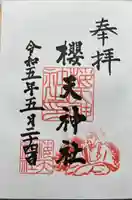 奉拝
櫻天神社
令和五年五月二十四日